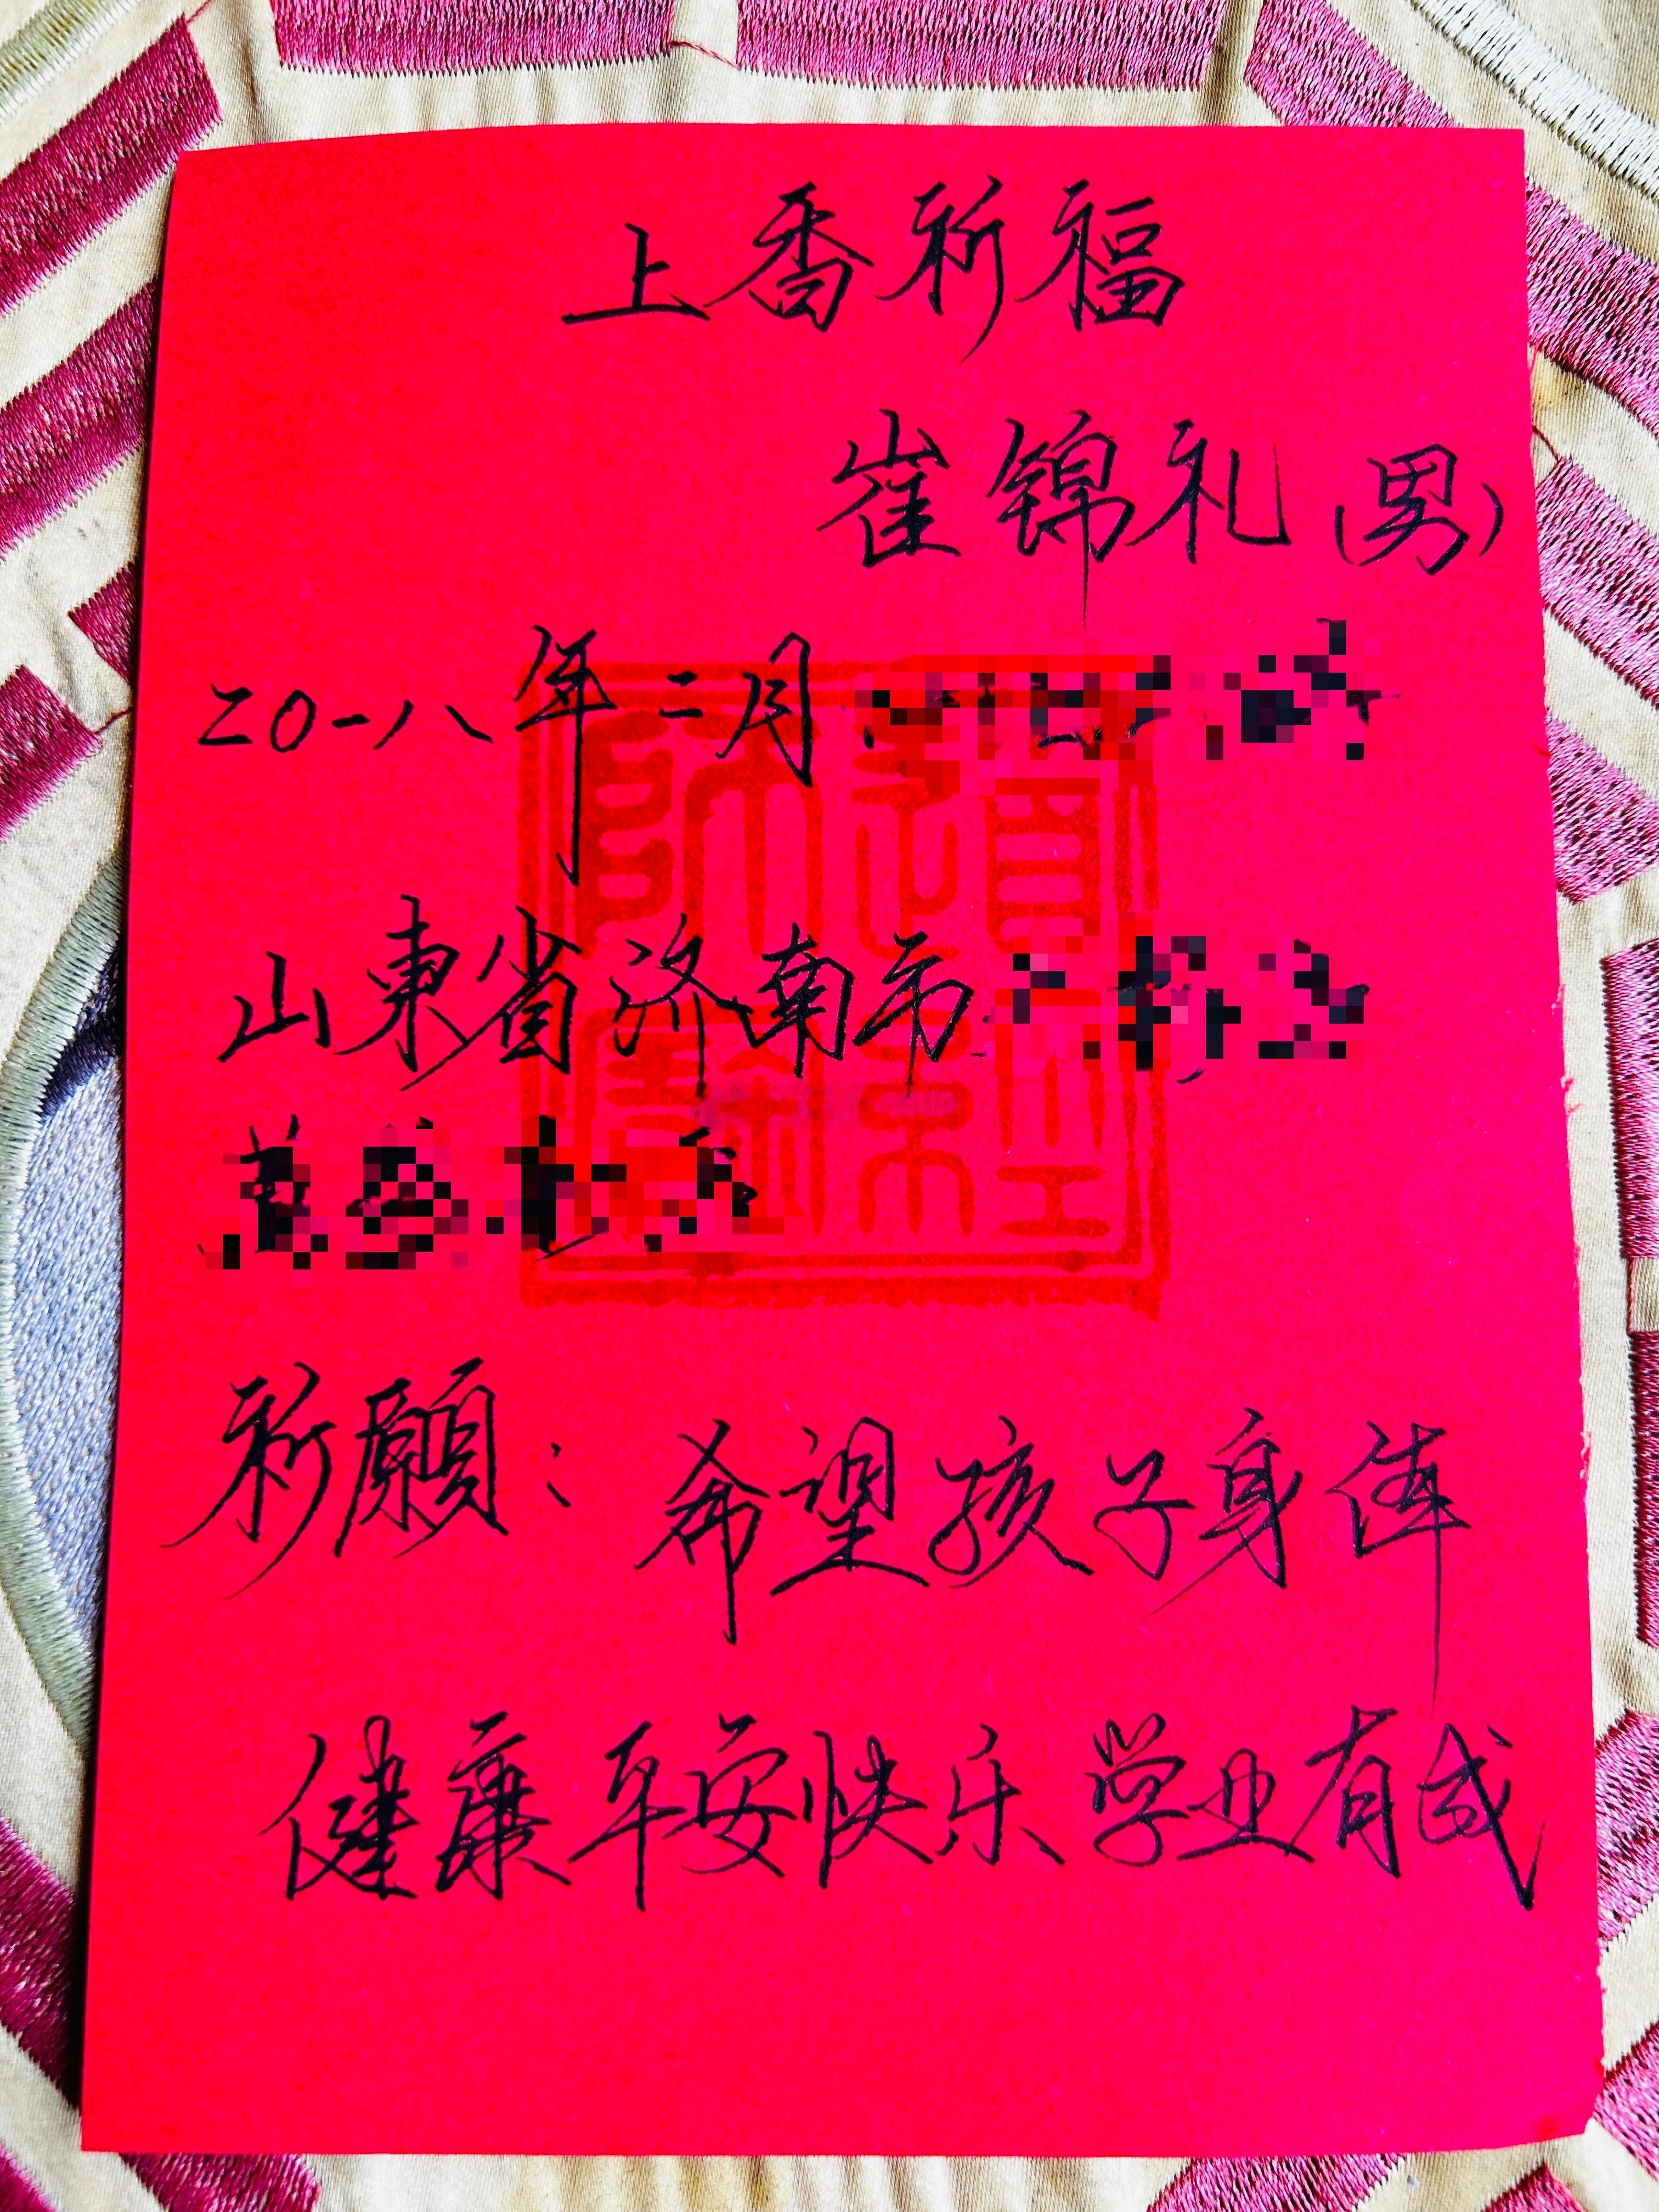 上香祈福
崔锦礼（男）
二0一八年二月
山東省济南市
祈願：希望孩子身体
健康平安快乐学业有成